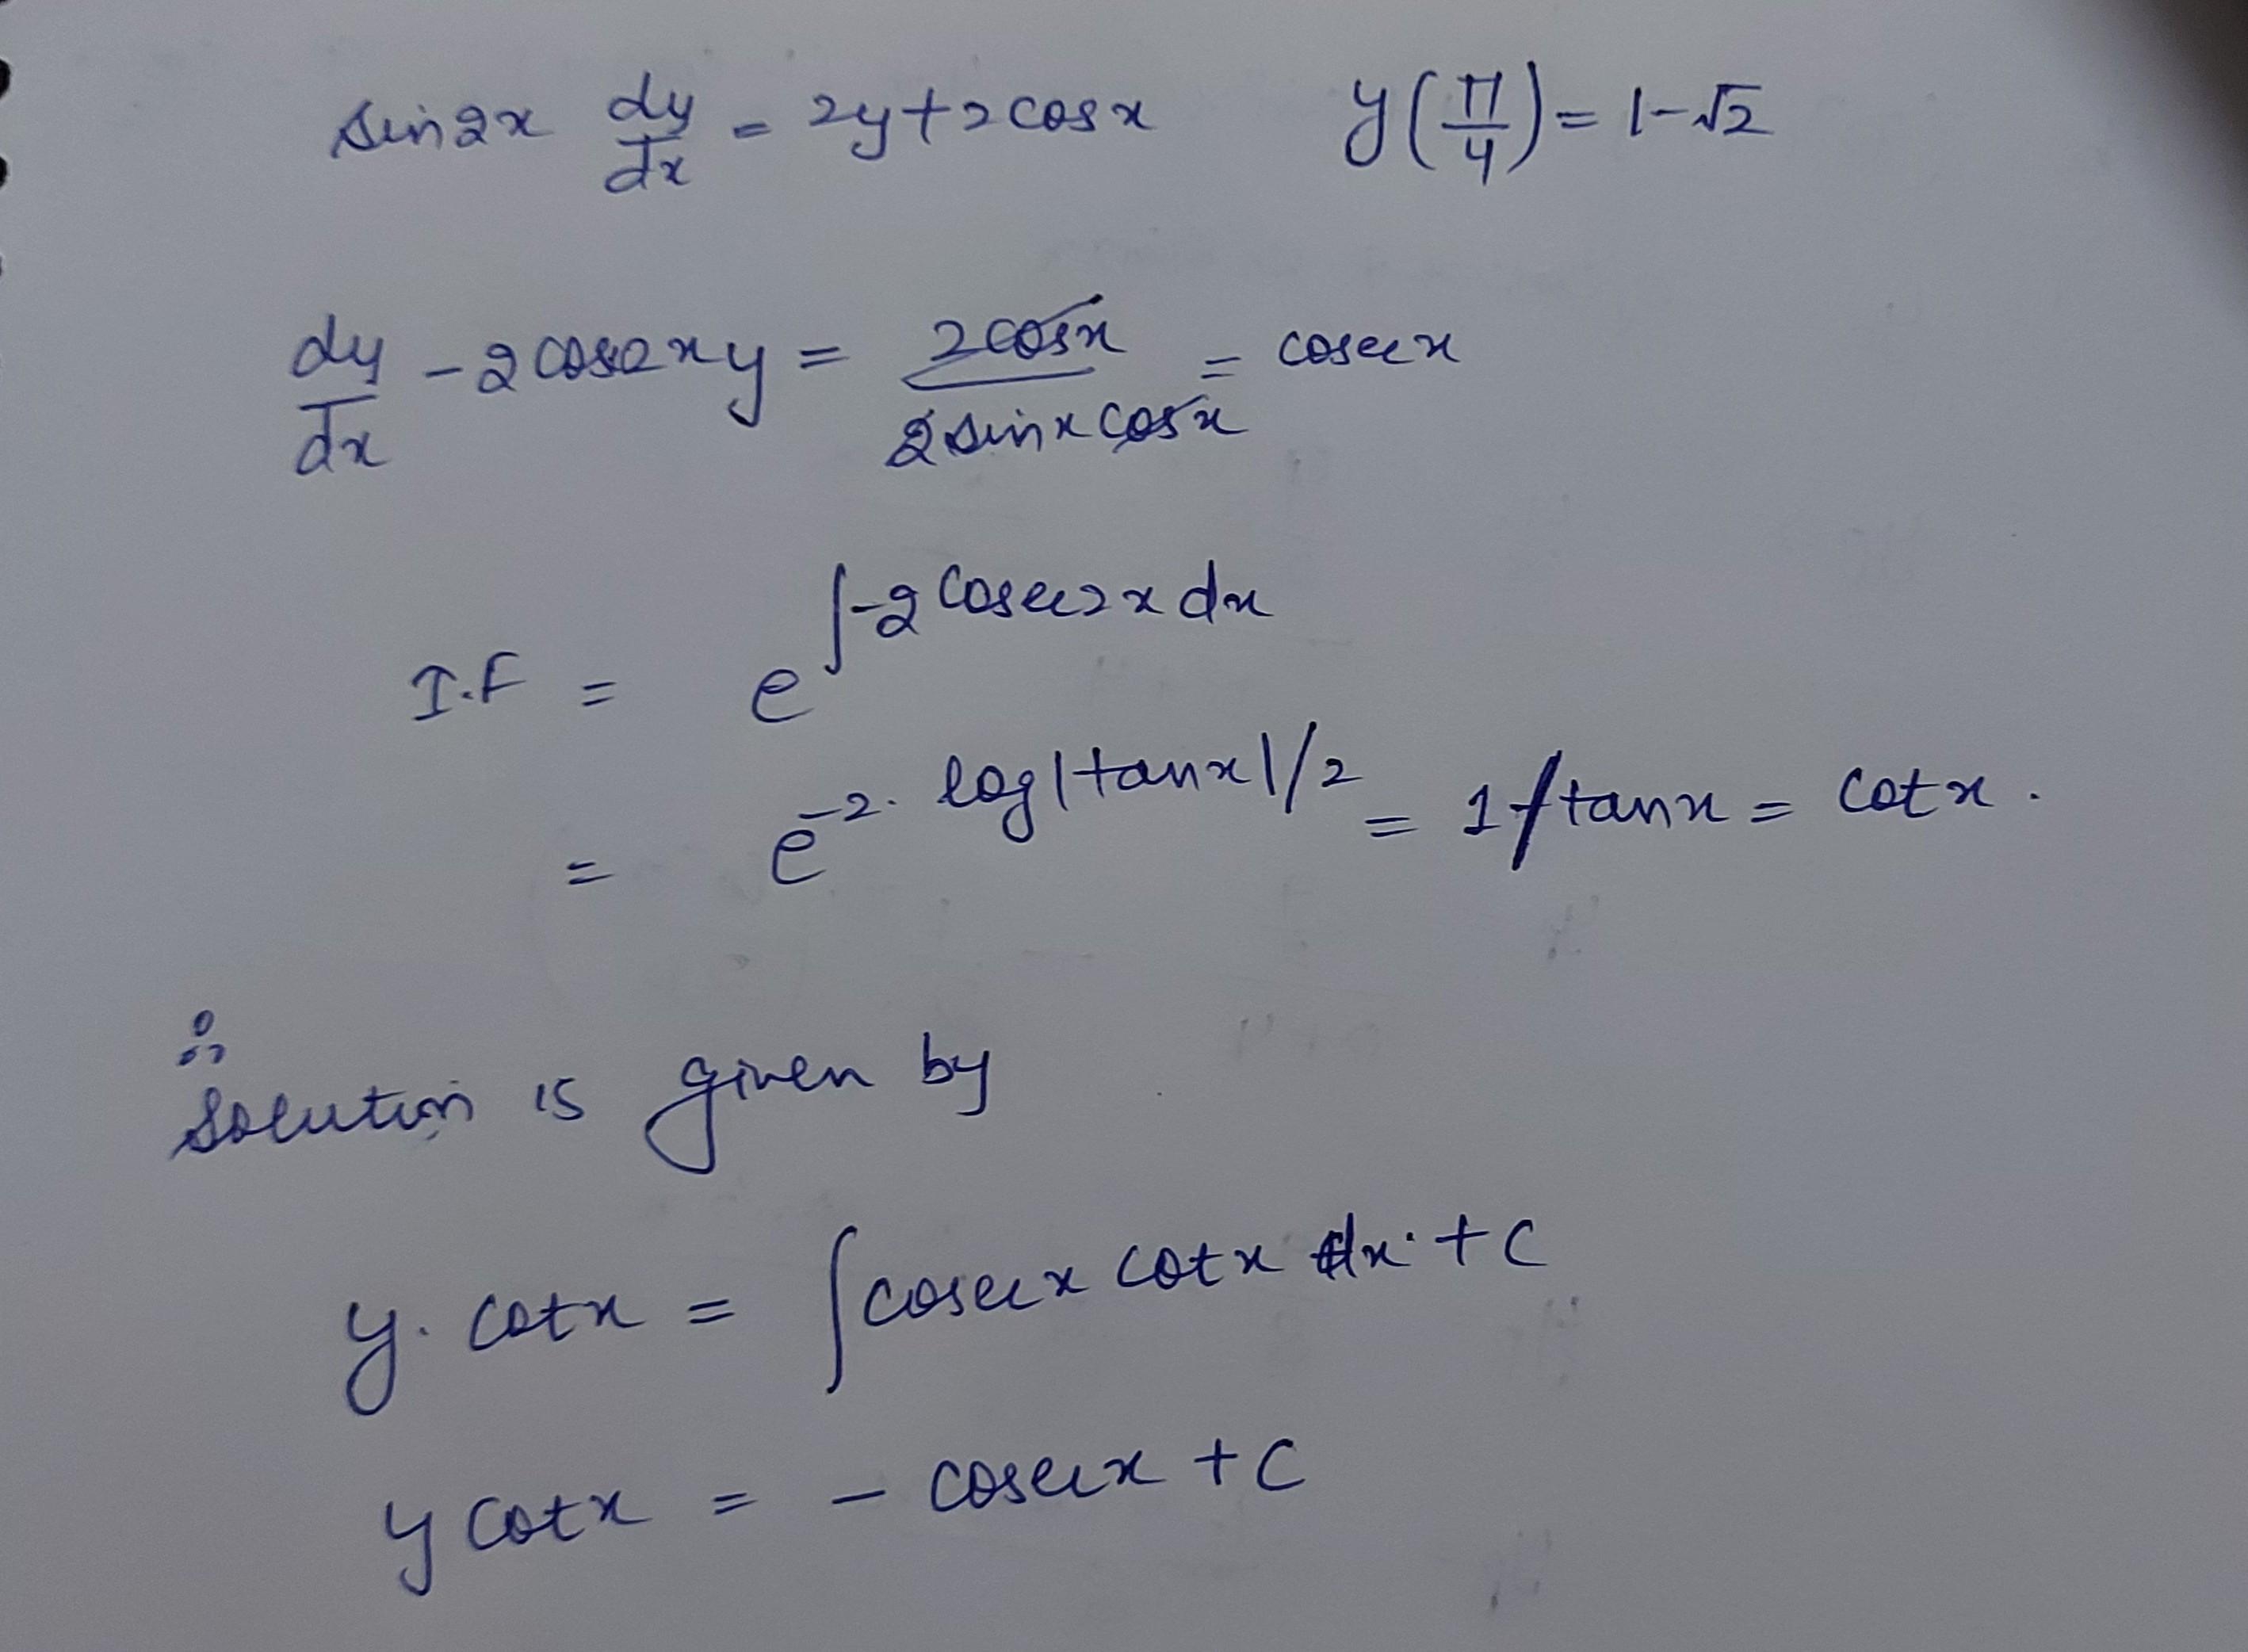 sin2x dy/dx = 2y+2cosx    y(π/4) = 1-√2
dy/dx - 2cos2x y = 2cosx/2sinx cosx = cosecx
I.F = e^∫-2cosec2x dx
= e^-2. log|tanx|/2 = 1/tanx = cotx.
∴
Solution is given by
y. cotx = ∫cosecx cotx dx. + C
y cotx = - cosecx + C